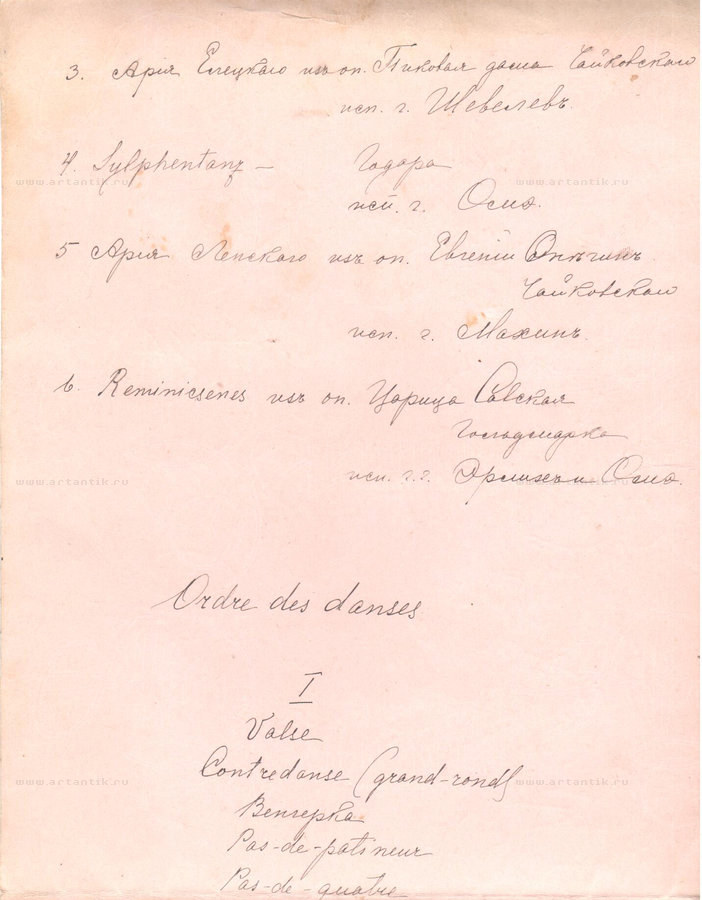 3. Ария Елецкаго изъ оп. Пиковая дама Чайковскаго
исп. г. Шевелевъ.
4. Sylphentanz — Годара
исп. г.
5 Ария Ленскаго изъ оп. Евгеній Онѣгинъ
Чайковскаго
исп. г. Махинъ.
6. Reminicsenes изъ оп. Царица Савская
Гольдмарка
исп. г.г.
Ordre des danses
I
Valse
Contredanse (grand-rond)
Венгерка
Pas-de-patineur
Pas-de-quatre
www.artantik.ru